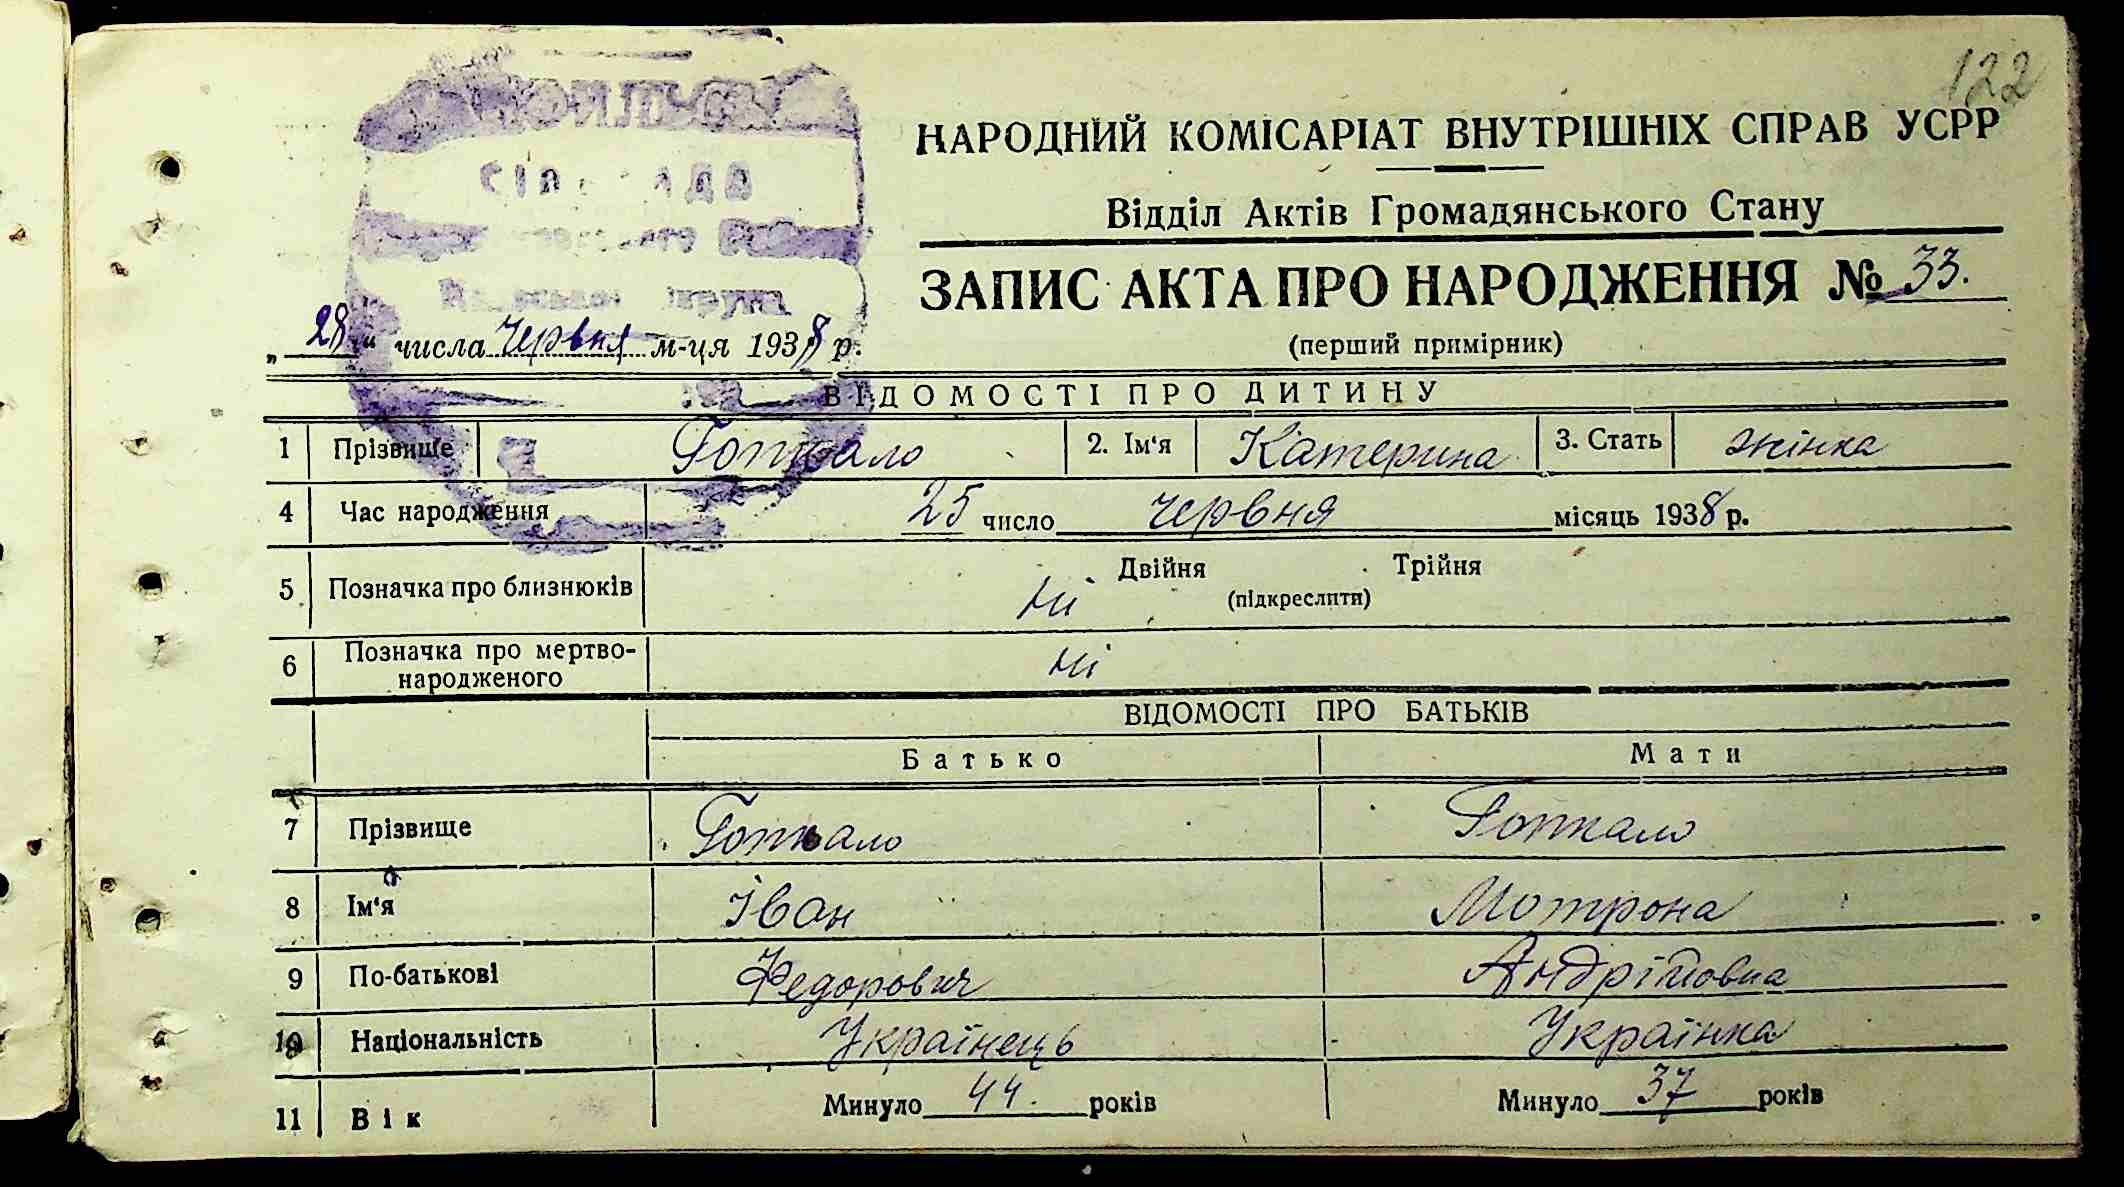 122
НАРОДНИЙ КОМІСАРІАТ ВНУТРІШНІХ СПРАВ УСРР
Відділ Актів Громадянського Стану
ЗАПИС АКТА ПРО НАРОДЖЕННЯ № 33.
(перший примірник)
„28“ числа червня м-ця 1938 р.
ВІДОМОСТІ ПРО ДИТИНУ
1 Прізвище Гопкало 2. Ім‘я Катерина 3. Стать жінка
4 Час народження 25 число червня місяць 1938 р.
5 Позначка про близнюків ні Двійня Трійня
(підкреслити)
6 Позначка про мертво-
народженого ні
ВІДОМОСТІ ПРО БАТЬКІВ
Батько Мати
7 Прізвище Гопкало Гопкало
8 Ім‘я Іван Мотрона
9 По-батькові Федорович Андріївна
10 Національність Українець Українка
11 Вік Минуло 44. років Минуло 37 років